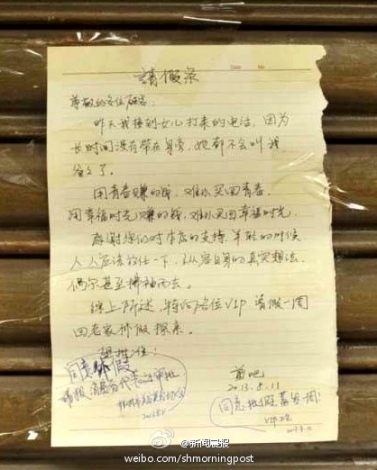 請假条
Date
No
尊敬的各位顾客:
昨天我接到女儿打来的电话,因为
长时间没有带在身旁,她都不会叫我
爸爸了。
用青春赚的钱,难以买回青春。
用幸福时光赚的钱,难以买回幸福时光。
感谢您们对本店的支持,年轻的时候
人人应该放任一下,认定自身的真实想法,
偶尔甚至拂袖而去。
综上所述,特向各位VIP请假一周
回老家休假探亲。
望批准!
同意休假
2013.5.11
VIP
@新闻晨报
weibo.com/shmorningpost